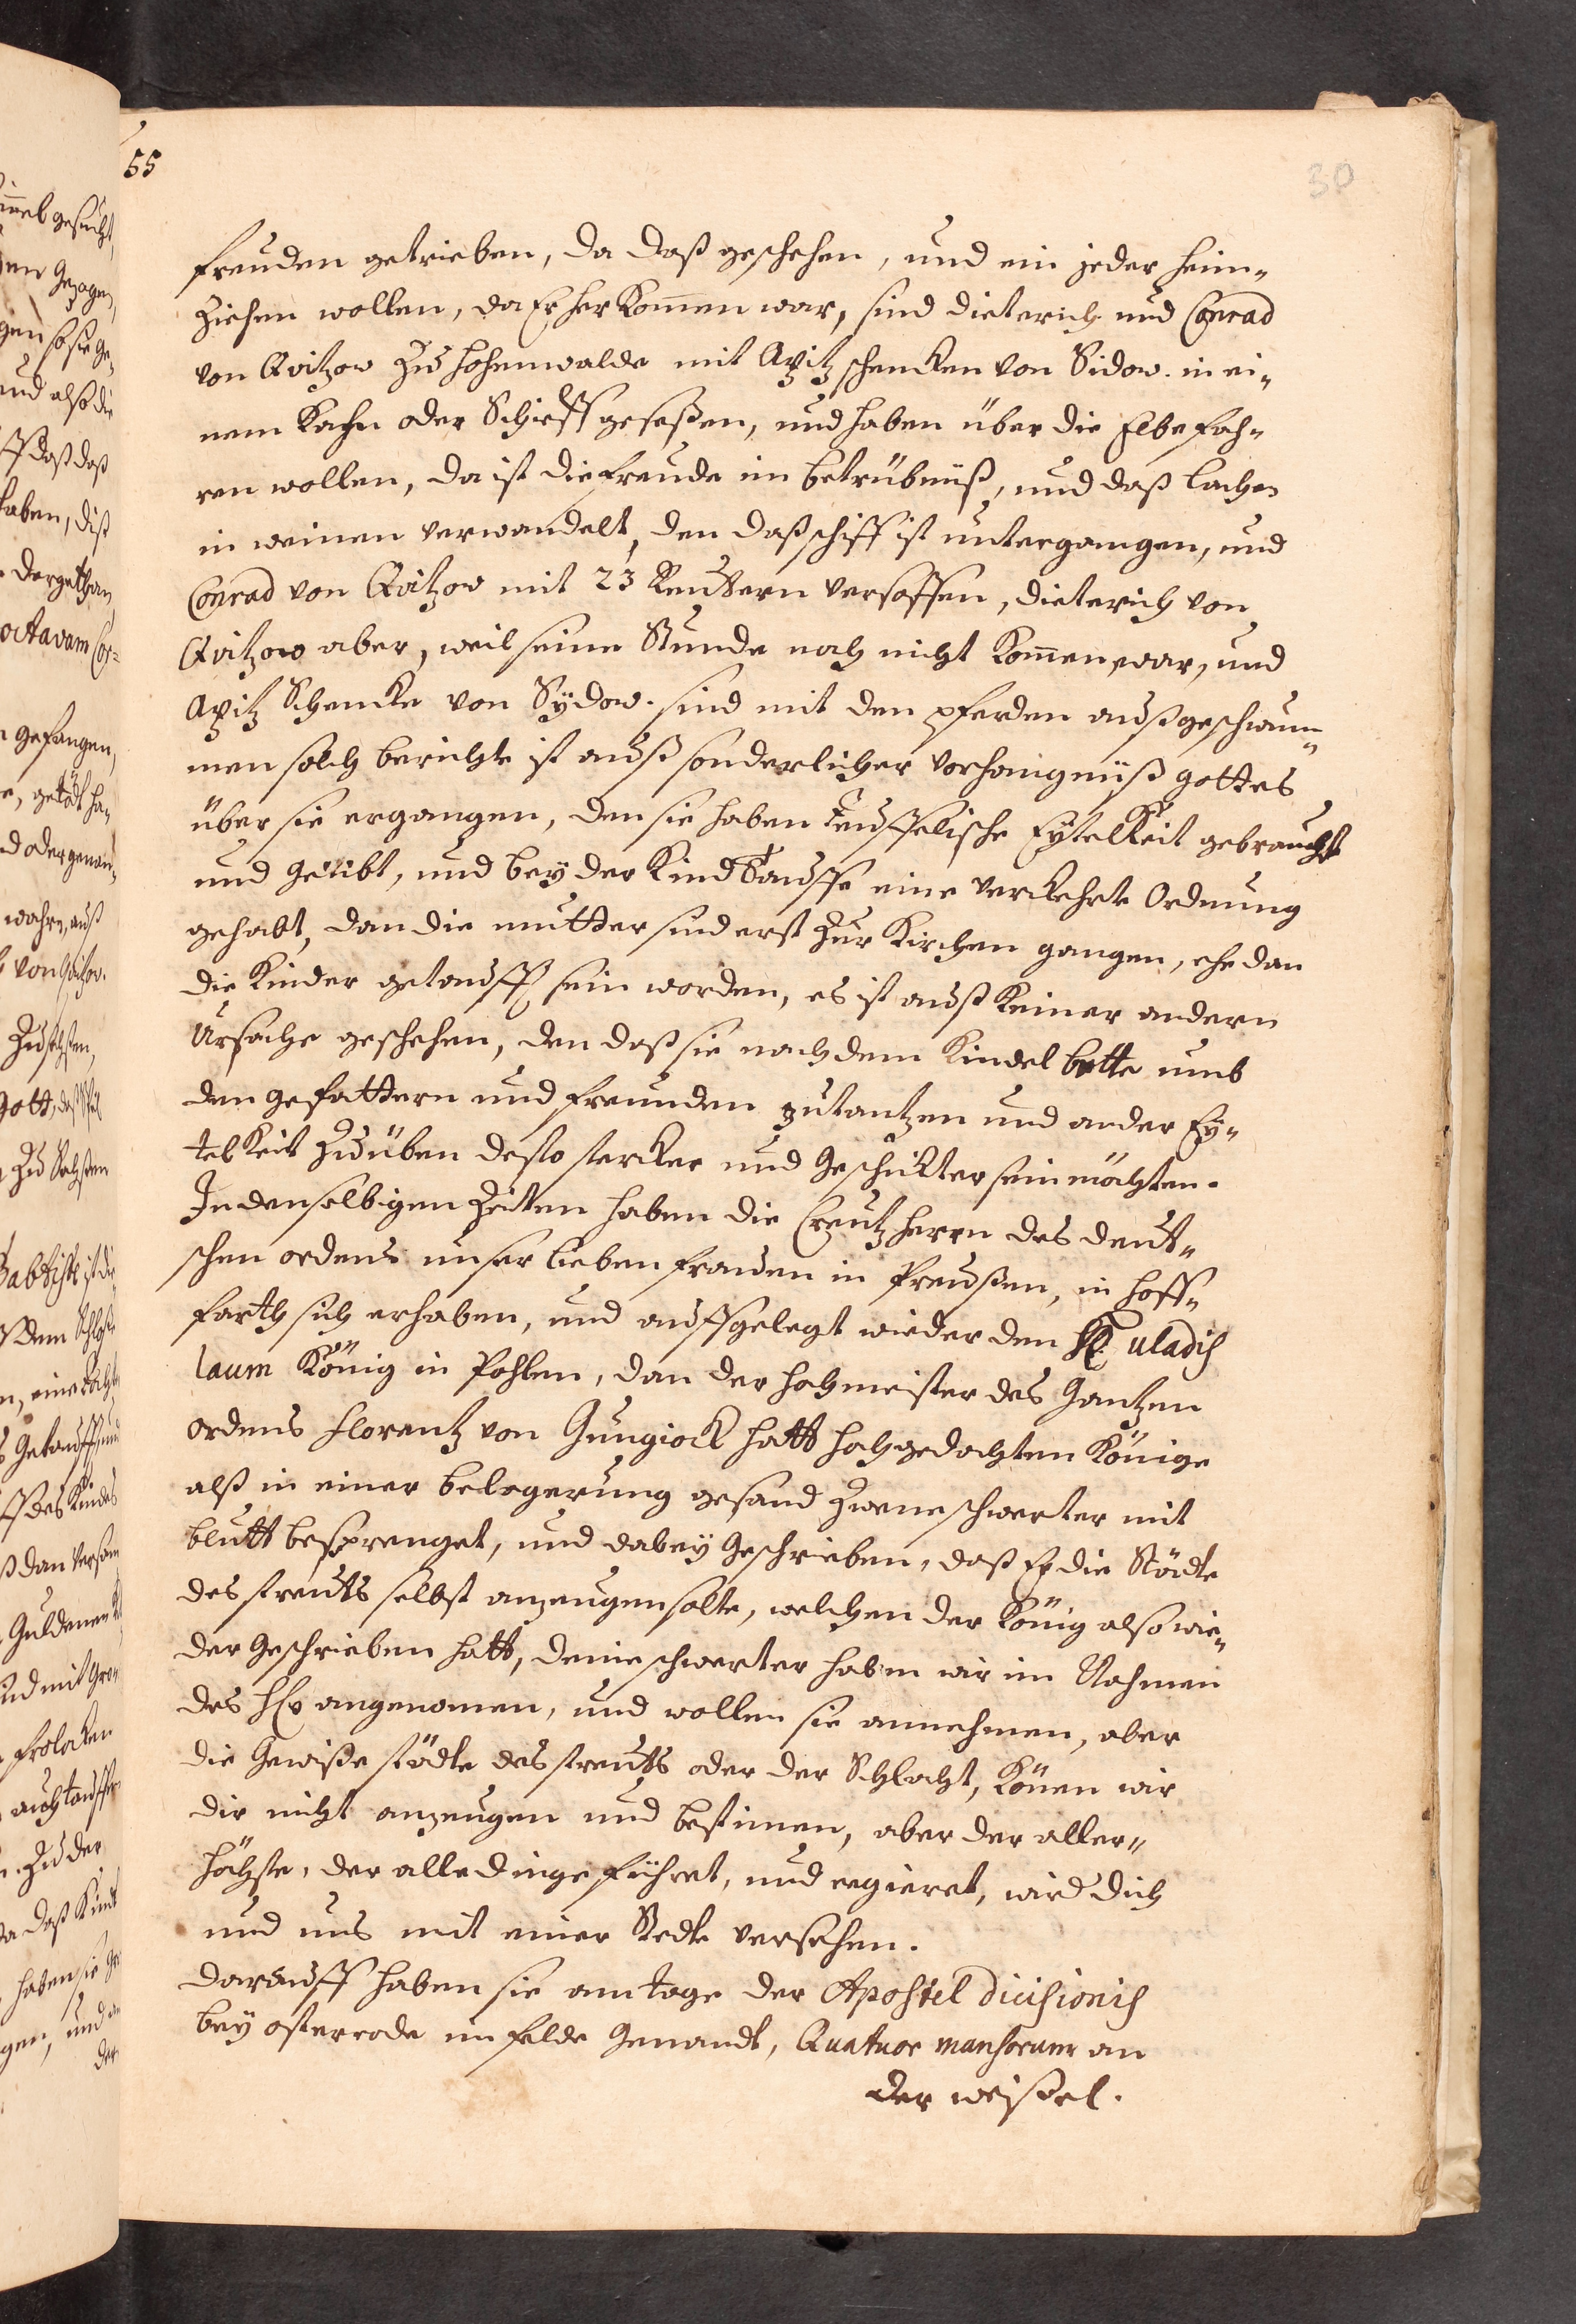 55
30
freuden getrieben, da daß geschehen, und ein jeder heim-
ziehen wollen, da Er her kom̄en war, sind dieterich und Conrad
von Qvitzow zu Hohenwalde mit Apitz schencken von Sidow. in ei-
nem Kahn oder Schieff geseßen, und haben über die Elbe fah-
ren wollen, da ist die freude im betrübnüß, und daß lachen
in weinen verwandelt, den daß schiff ist untergangen, und
Conrad von Qvitzow mit 23 Reuttern versoffen, dieterich von
Qvitzow aber, weil seine Stunde noch nicht kom̄en war, und
Apitz Schencke von Sydow. sind mit den pferden außgeschwum-
men solch berichte ist auß sonderlicher verhängnüß gottes
über sie ergangen, den sie haben teuffelische Eytelkeit gebraucht
und geübt, und bey der Kind Tauffe eine verkehrte Ordnung
gehabt, dan die mutter sind erst zur Kirchen gangen, ehe dan
die Kinder getaufft sein worden, es ist auß keiner andern
Ursache geschehen, den daß sie nach dem Kindel bette umb
den gefattern und freunden zu tantzen und ander Ey-
telkeit zu üben desto stercker und geschickter sein möchten.
In denselbigen Zeiten haben die Creutz herrn des deut-
schen ordens unser lieben frauen in Preußen, in hoff-
farth sich erhaben, und auffgelegt wieder den H. uladis
laum König in Pohlen, dan der hochmeister des Gantzen
ordens Florentz von Gungiock hatt hochgedachten Könige
alß in einer belagerung gesand zwene schwerter mit
blutt besprenget, und dabey geschrieben, daß Er die Städte
des streuts selbst anzeugen solte, welchen der König also wie-
der geschrieben hatt, deine schwerter haben wir im Nahmen
des angenomen, und wollen sie annehmen, aber
die gewiße städte des streuts oder der Schlacht, Kön̄en wir
dir nicht anzeugen und bestimen, aber der aller-
höchste, der alle dinge führet, und regieret, wird dich
und uns mit einer Stedte versehen.
darauff haben sie am tage der Apostel dicisionis
bey osterrode im felde genandt, Quatuor mansorum an
der weißel.